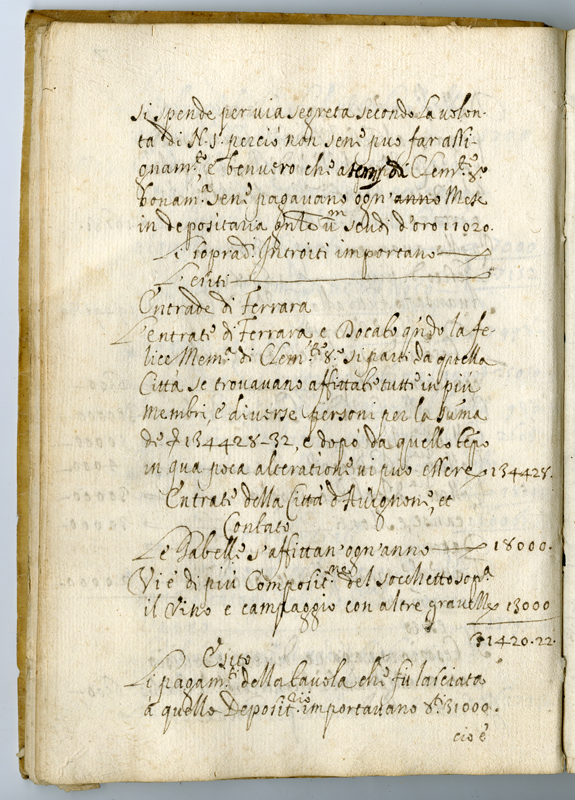 si spende per via segreta secondo la volon-
ta di N. S. percio non sene puo far assi-
gnam.to, è ben vero che a tempi di Clem.te 8.o
bona m.a sene pagavano ogn'anno Mese
in depositaria scudi d'oro 11020.
Le soprad. Introiti importano
L'esiti
Entrade di Ferrara
L'entrate di Ferrara e Docato qndo la fe-
lice Mem.a di Clem.te 8.o si parti da quella
Città se trovavano affittate tutte in più
Membri, è diverse persone per la suma
de 134428-32, e dopò da quello tẽpo
in qua poca alteratione vi puo essere 134428.
Entrate della Città d'Avignone, et
Contato
Le Gabelle s'affittan ogn'anno 18000.
Vi è di più Composit.ne del socchetto sop.a
il Vino e campaggio con altre gravelle 13000
31420.22.
Esito
Li pagam.ti della tavola che fu lasciata
a quello Deposit.rio importavano 31000.
cio è